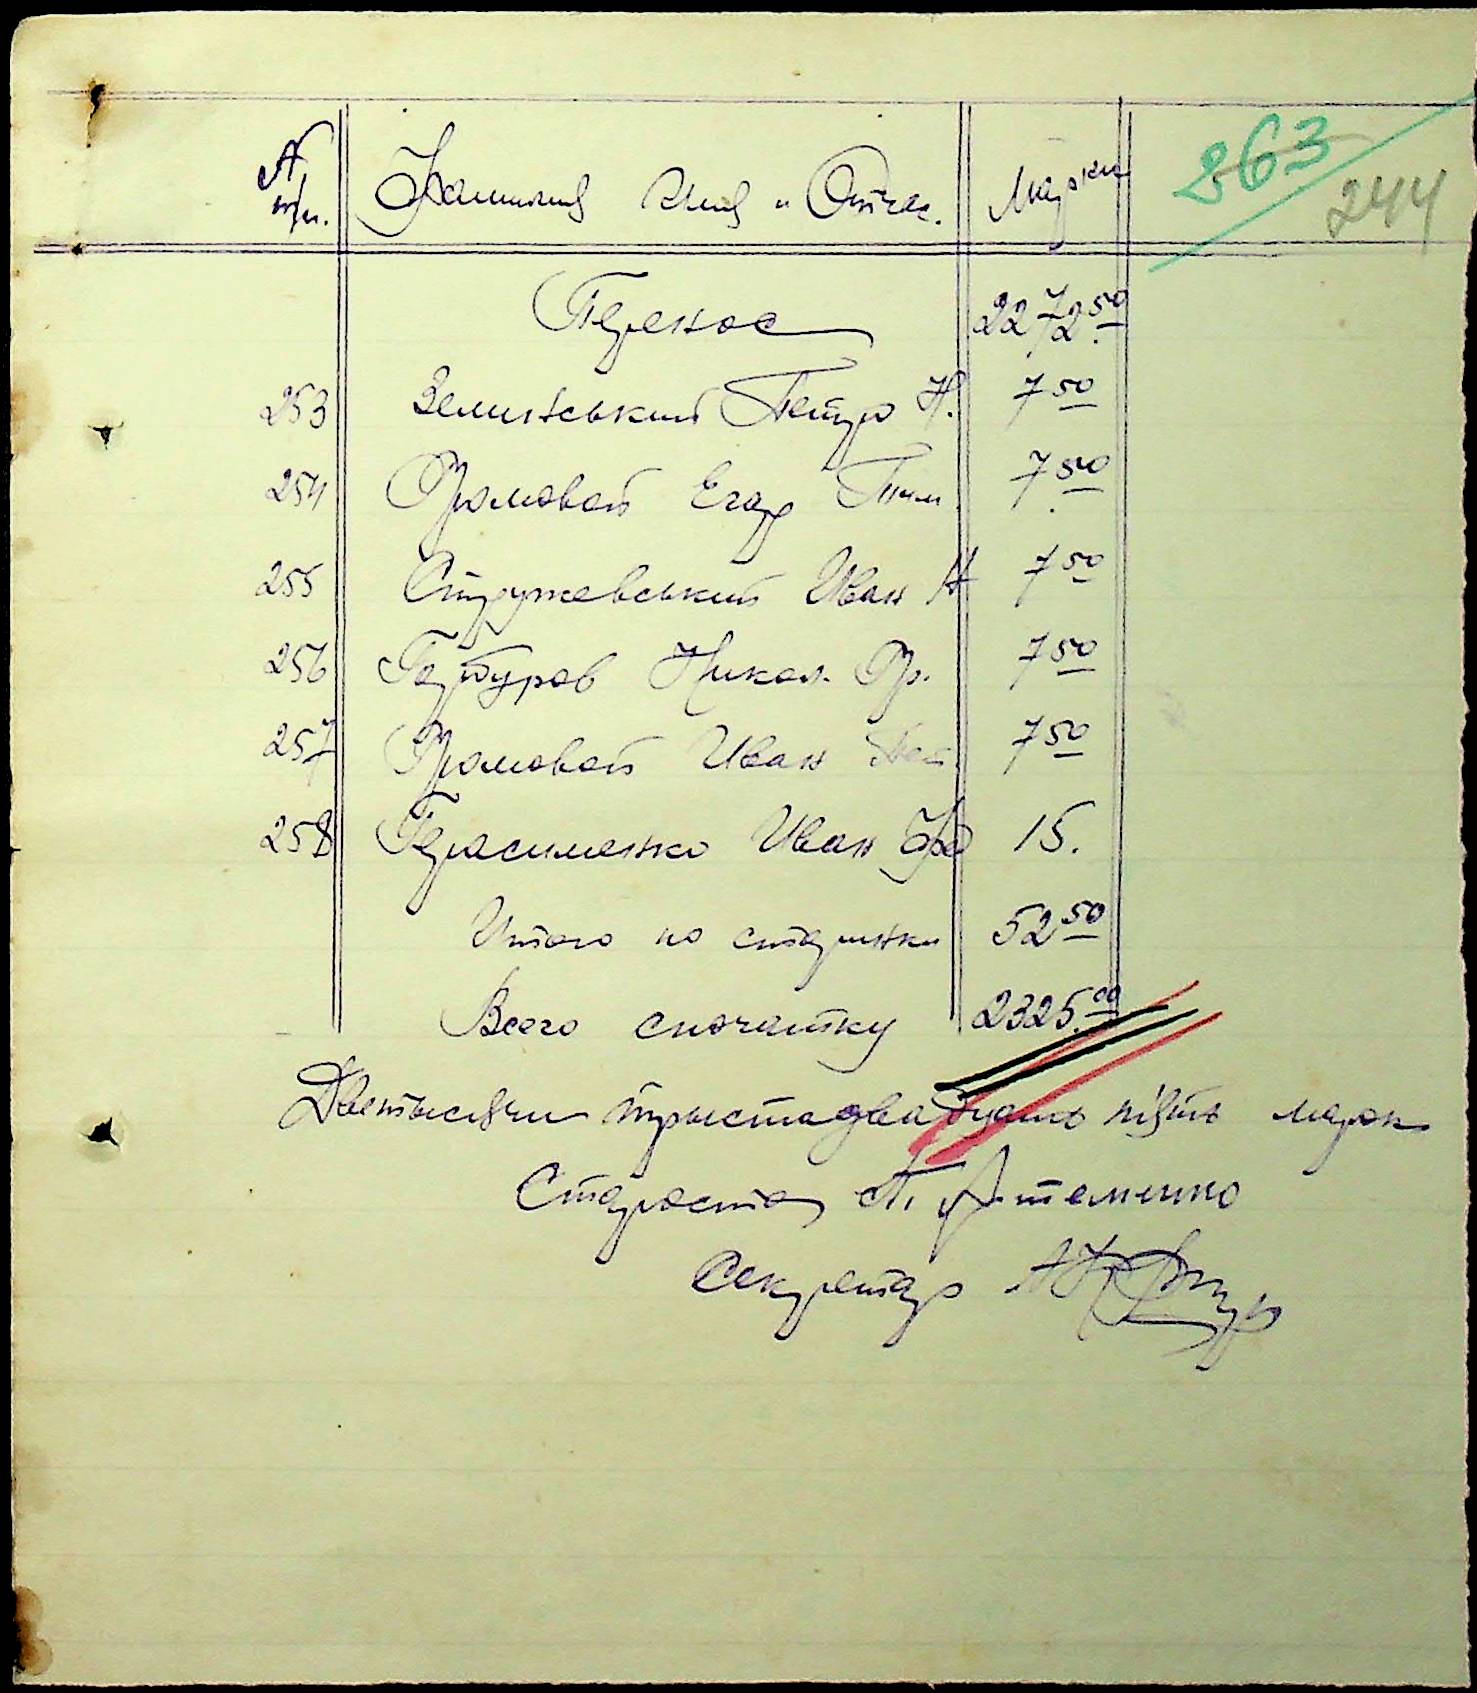 263
244
№ п/п. Фамилия Имя и Отчес. Марки
Перенос 2272.50
253 Зелинський Петро Н. 7 50
254 Яромовой Егор Тим. 7 50
255 Стружевський Иван Н 7 50
256 Гайбуров Никол. Гр. 7 50
257 Яромовой Иван 7 50
258 Герасименко Иван 15.
Итого по сторинки 52 50
Всего спочатку 2325.00
Две тысячи трыста двадцать пять марок
Староста А. Артеменко
Секретар